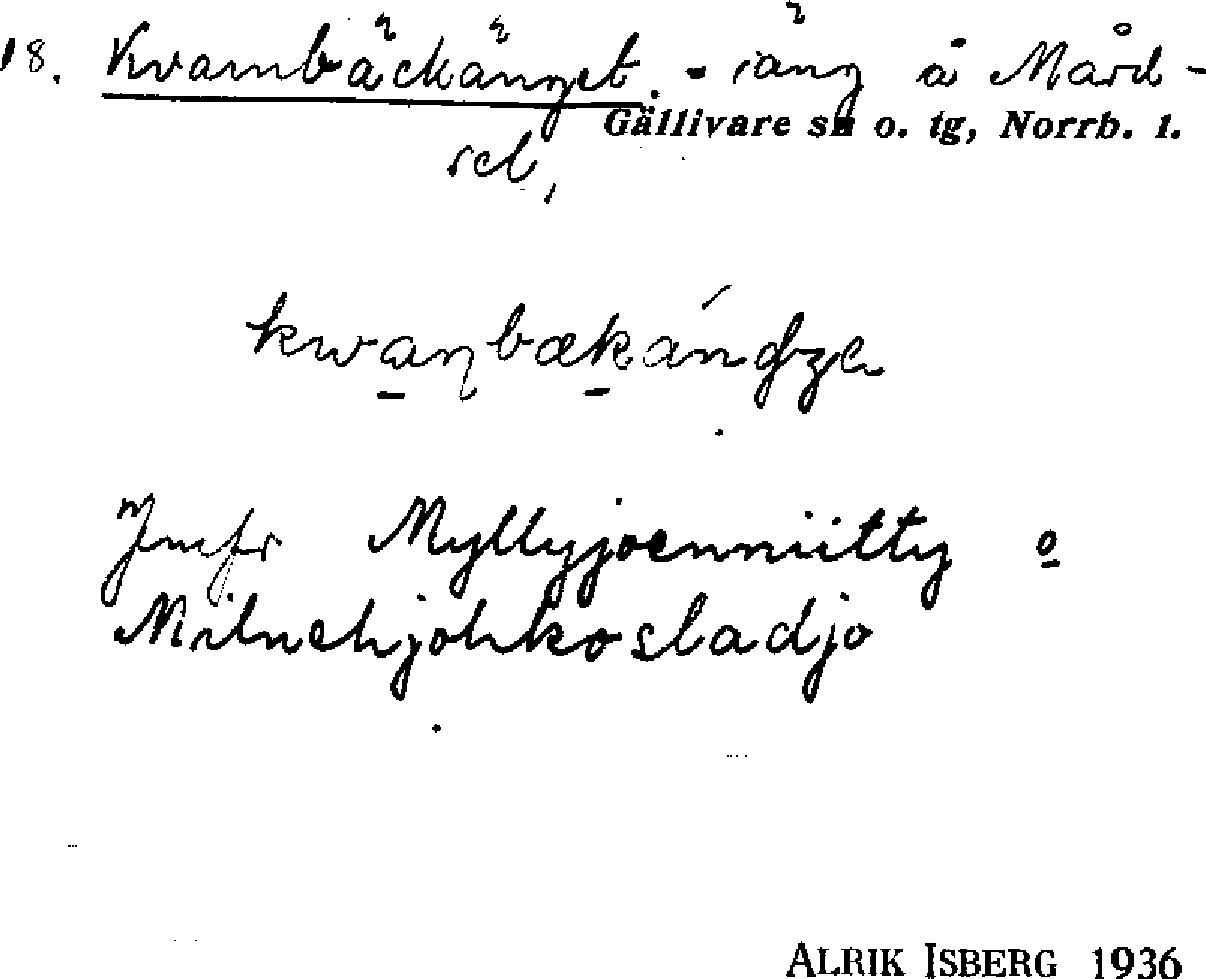 18. Kvarnbäckänget. - äng å Mård-
Gällivare sn o. tg, Norrb. l.
sel,
kwaɳbækándʒe
Jmfr Myllyjoenniitty o
Milnehjohkosladjo
ALRIK ISBERG 1936